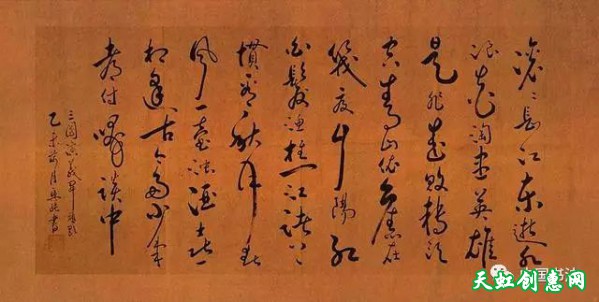 滚〻長江东逝水
浪花淘尽英雄
是非成败转头
空青山依旧在
幾度夕陽红
白髮渔樵江渚上
惯看秋月春
风一壶浊酒喜
相逢古今多少事
都付笑谈中
三国演义
乙未 月 书
国书法
天虹创惠网